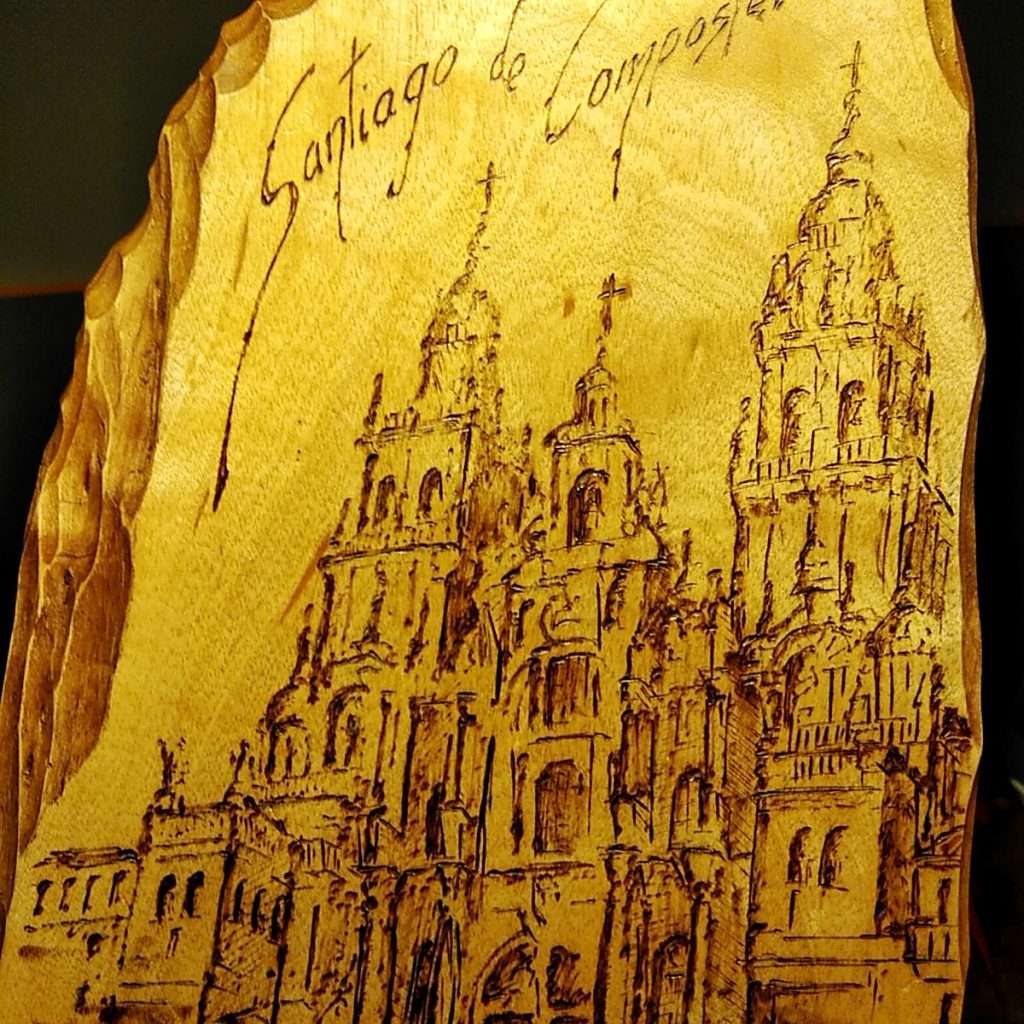 Santiago de Compostel